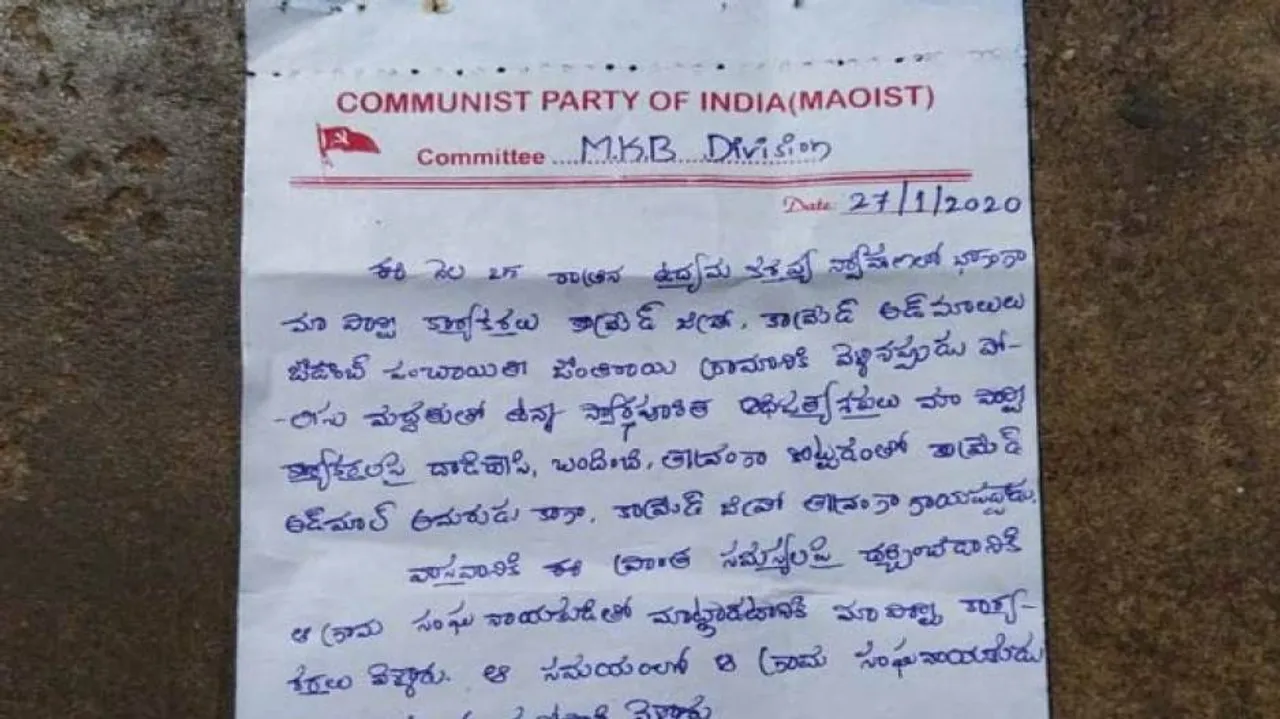 COMMUNIST PARTY OF INDIA(MAOIST)
Committee M.K.B Division
Date 27/1/2020
ఈ నెల 25 రాత్రిన ఉద్యమ కర్తవ్య భాగంగా
మా పార్టీ కార్యకర్తలు కామ్రేడ్ జిపో, కామ్రేడ్ అడ్మాలులు
పంచాయితి జంతిరాయి గ్రామానికి వెళ్ళినప్పుడు పో-
-లీసు మద్దతుతో ఉన్న స్వార్థపూరిత మా పార్టీ
కార్యకర్తలపై దాడిచేసి, బంధించి, తీవ్రంగా కొట్టడంతో కామ్రేడ్
అడ్మాల్ అమరుడు కాగా, కామ్రేడ్ జిపో తీవ్రంగా గాయపడ్డాడు.
వాస్తవానికి ఈ ప్రాంత సమస్యలపై చర్చించడానికి
ఆ గ్రామ సంఘ నాయకుడితో మాట్లాడటానికి మా పార్టీ కార్య-
కర్తలు వెళ్ళారు. ఆ సమయంలో ఆ గ్రామ సంఘనాయకుడు